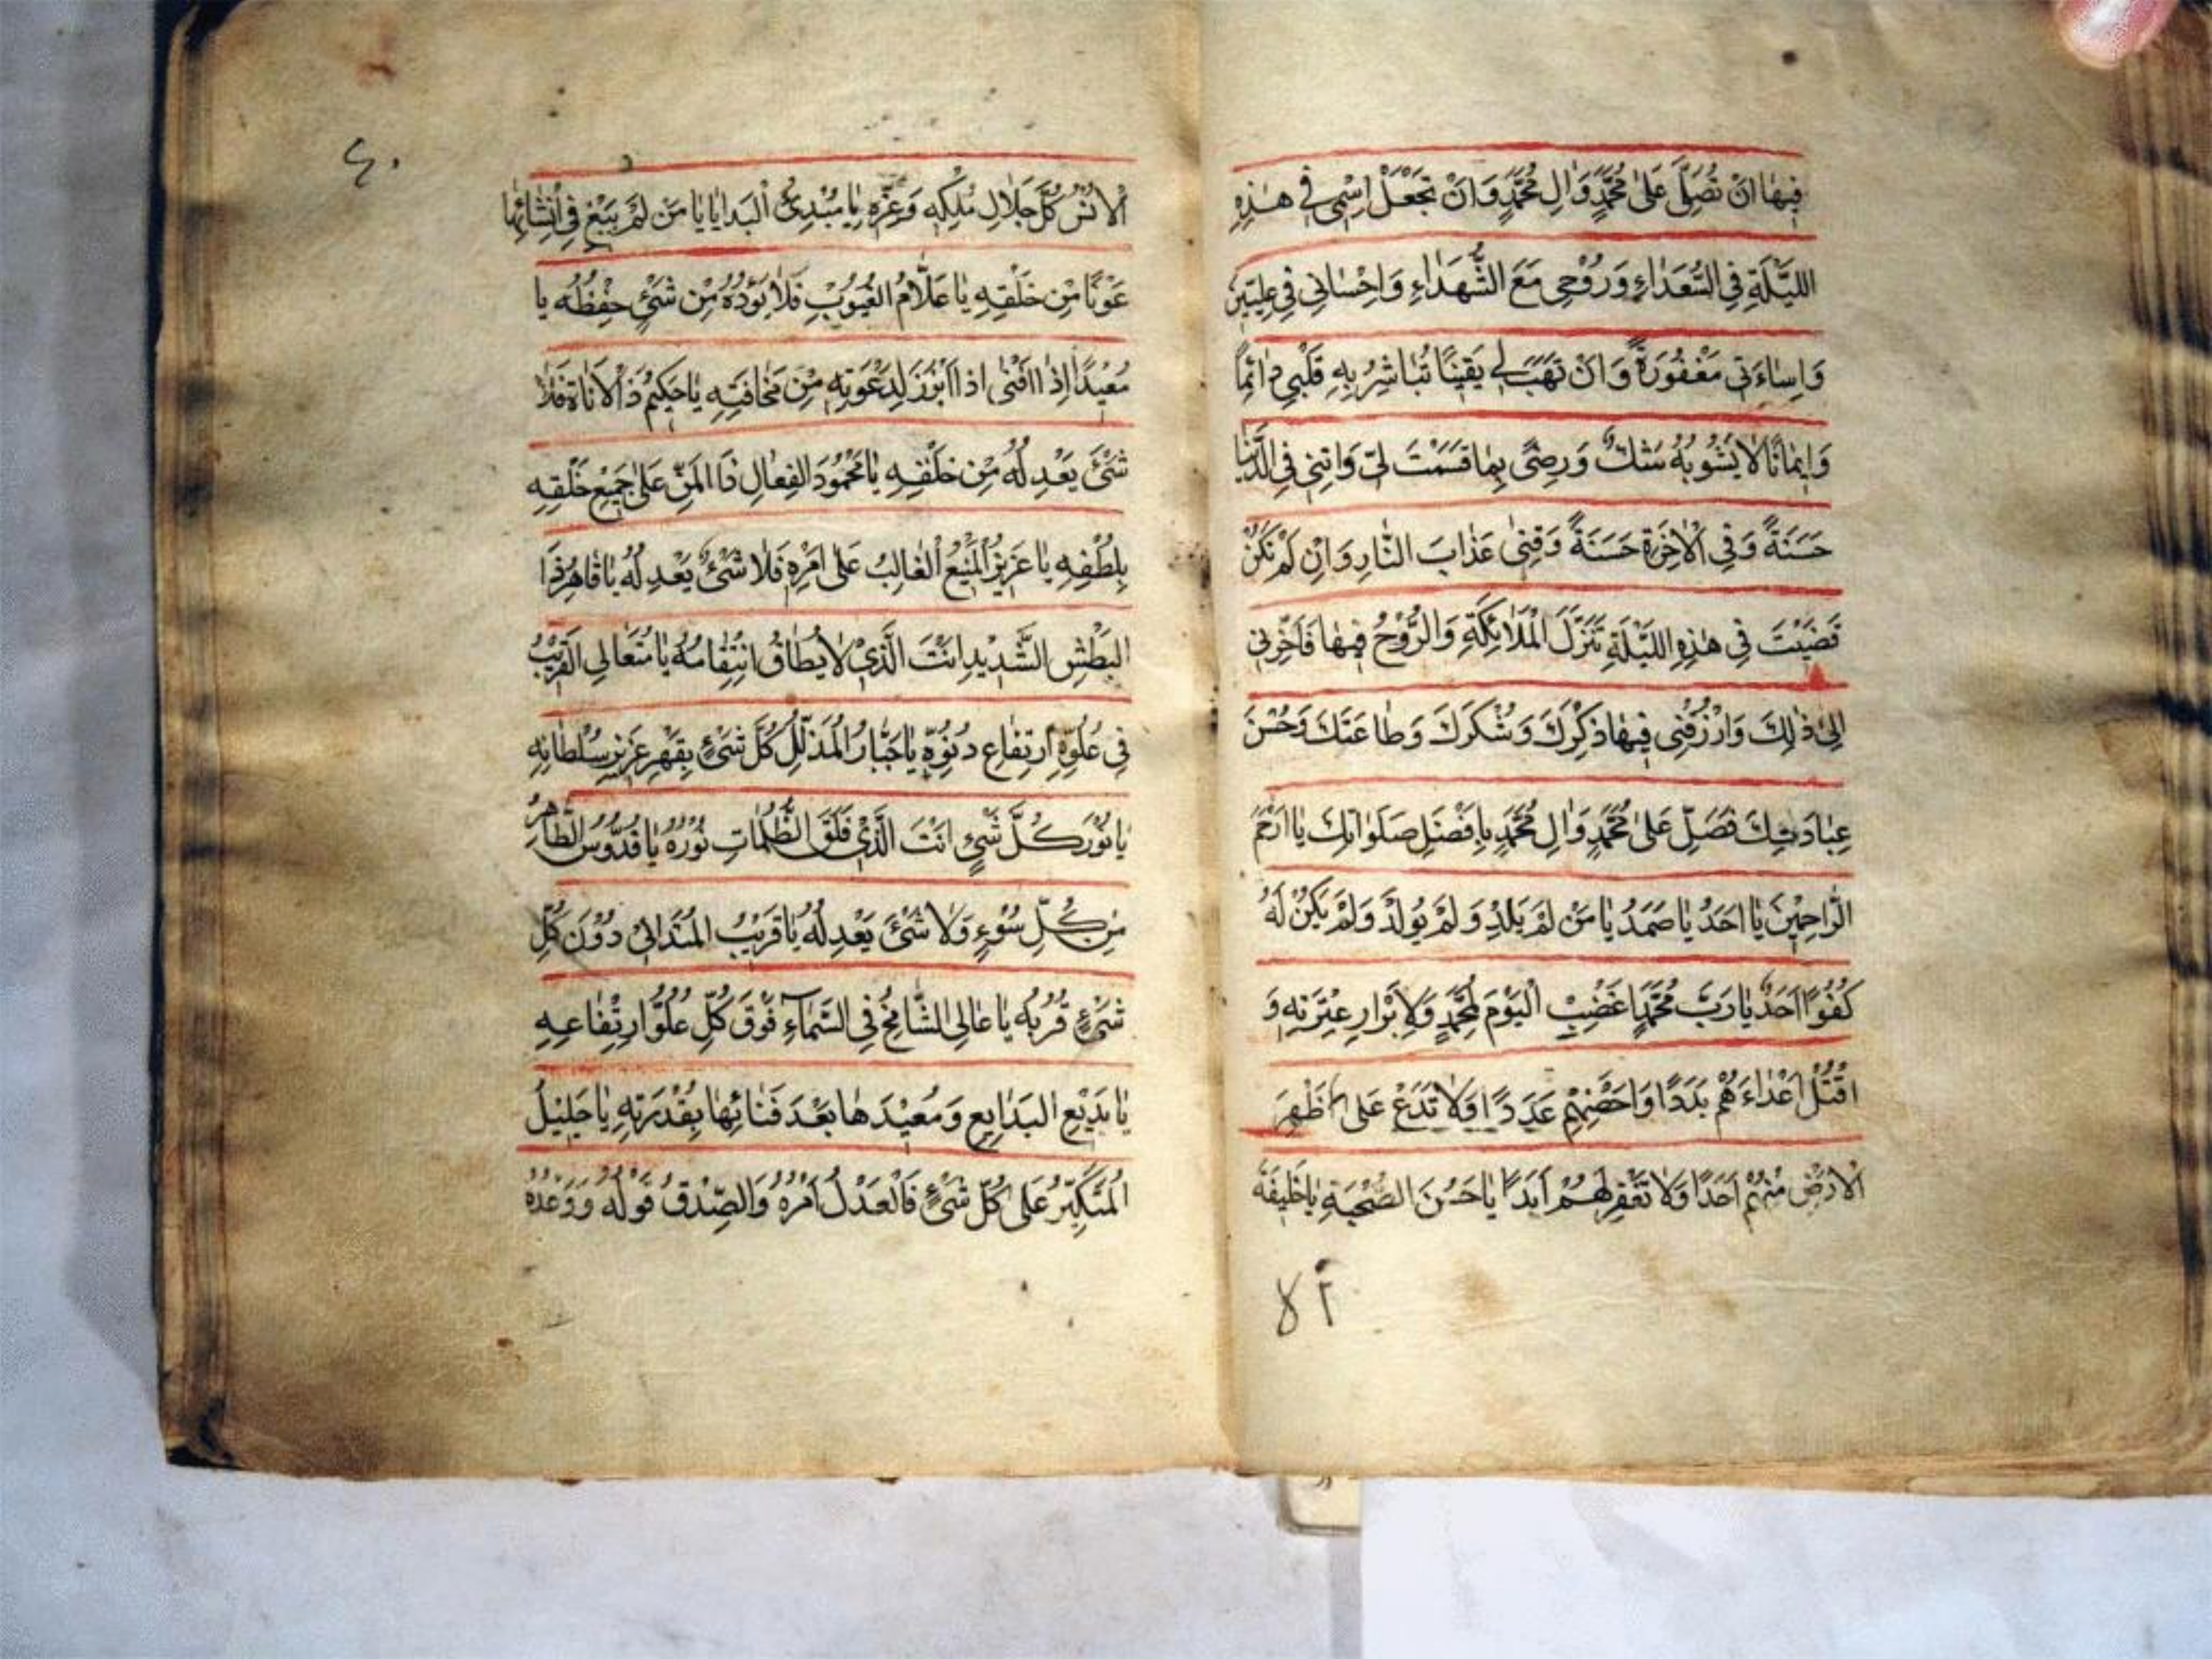 فِيهَا اَنْ تُصَلِّىَ عَلىٰ مُحَمَّدٍ وَاٰلِ مُحَمَّدٍ وَاَنْ تَجْعَلَ اِسْمِى فِى هٰذِهِ
اللَّيْلَةِ فِى السُّعَدَاءِ وَرُوْحِى مَعَ الشُّهَدَاءِ وَاِحْسَانِى فِى عِلِّيّٖنَ
وَاِسَاءَتِى مَغْفُورَةً وَاَنْ تَهَبَ لِى يَقِينًا تُبَاشِرُ بِهِ قَلْبِى دَائِمًا
وَاِيمَانًا لَا يَشُوبُهُ شَكٌّ وَرِضًى بِمَا قَسَمْتَ لِى وَاٰتِنِى فِى الدُّنْيَا
حَسَنَةً وَفِى الْاٰخِرَةِ حَسَنَةً وَقِنِى عَذَابَ النَّارِ وَاِنْ لَمْ تَكُنْ
قَضَيْتَ فِى هٰذِهِ اللَّيْلَةِ تَنَزَّلَ الْمَلَائِكَةِ وَالرُّوْحُ فِيهَا فَاَخِّرْنِى
اِلىٰ ذٰلِكَ وَارْزُقْنِى فِيهَا ذِكْرَكَ وَشُكْرَكَ وَطَاعَتَكَ وَحُسْنَ
عِبَادَتِكَ فَصَلِّ عَلىٰ مُحَمَّدٍ وَاٰلِ مُحَمَّدٍ بِاَفْضَلِ صَلَوَاتِكَ يَا اَرْحَمَ
الرَّاحِمِيْنَ يَا اَحَدُ يَا صَمَدُ يَا مَنْ لَمْ يَلِدْ وَلَمْ يُولَدْ وَلَمْ يَكُنْ لَهُ
كُفُوًا اَحَدٌ يَا رَبَّ مُحَمَّدٍ اغْضِبْ الْيَوْمَ لِمُحَمَّدٍ وَلِاَبْرَارِ عِتْرَتِهِ وَ
اقْتُلْ اَعْدَاءَهُمْ بَدَدًا وَاَحْصِهِمْ عَدَدًا وَلَا تَدَعْ عَلىٰ ظَهْرِ
الْاَرْضِ مِنْهُمْ اَحَدًا وَلَا تَغْفِرْ لَهُمْ اَبَدًا يَا حَسَنَ الصُّحْبَةِ يَا خَلِيفَةَ
٨٢
٤٠
الْاَنْسُ كُلَّ جَلَالِ مُلْكِهِ وَعِزِّهِ يَا مُبْدِئُ الْبَدَايَا يَا مَنْ لَمْ يَبْغِ فِى اِنْشَائِهَا
عَوْنًا مِنْ خَلْقِهِ يَا عَلَّامُ الْغُيُوْبِ فَلَا يَؤُدُهُ مِنْ شَىْءٍ حِفْظُهُ يَا
مُعِيْدًا اِذَا اَفْنٰى اِذَا اَبْرَزَ لِدَعْوَتِهِ مِنْ مَخَافَتِهِ يَا حَكِيْمُ ذَا الْاَنَاةِ فَلَا
شَىْءَ يَعْدِلُهُ مِنْ خَلْقِهِ يَا مَحْمُوْدَ الْفِعَالِ ذَا الْمَنِّ عَلىٰ جَمِيْعِ خَلْقِهِ
بِلُطْفِهِ يَا عَزِيْزُ الْمَنِيْعُ الْغَالِبُ عَلىٰ اَمْرِهِ فَلَا شَىْءٌ يَعْدِلُهُ يَا قَاهِرُ ذَا
الْبَطْشِ الشَّدِيْدِ اَنْتَ الَّذِىْ لَا يُطَاقُ انْتِقَامُهُ يَا مُتَعَالِى الْقَرِيْبُ
فِى عُلُوِّهِ ارْتِفَاعِ دُنُوِّهِ يَا جَبَّارُ الْمُذَلِّلُ كُلَّ شَىْءٍ بِقَهْرِ عَزِيْزِ سُلْطَانِهِ
يَا نُوْرَ كُلِّ شَىْءٍ اَنْتَ الَّذِىْ فَلَقَ الظُّلُمَاتِ نُوْرُهُ يَا قُدُّوْسُ الطَّاهِرُ
مِنْ كُلِّ سُوْءٍ وَلَا شَىْءَ يَعْدِلُهُ يَا قَرِيْبُ الْمُتَدَانِى دُوْنَ كُلِّ
شَىْءٍ قُرْبُهُ يَا عَالِى الشَّامِخُ فِى السَّمَاءِ فَوْقَ كُلِّ عُلُوِّ ارْتِفَاعِهِ
يَا بَدِيْعَ الْبَدَايِعِ وَمُعِيْدَهَا بَعْدَ فَنَائِهَا بِقُدْرَتِهِ يَا جَلِيْلُ
الْمُتَكَبِّرُ عَلىٰ كُلِّ شَىْءٍ فَالْعَدْلُ اَمْرُهُ وَالصِّدْقُ قَوْلُهُ وَوَعْدُهُ